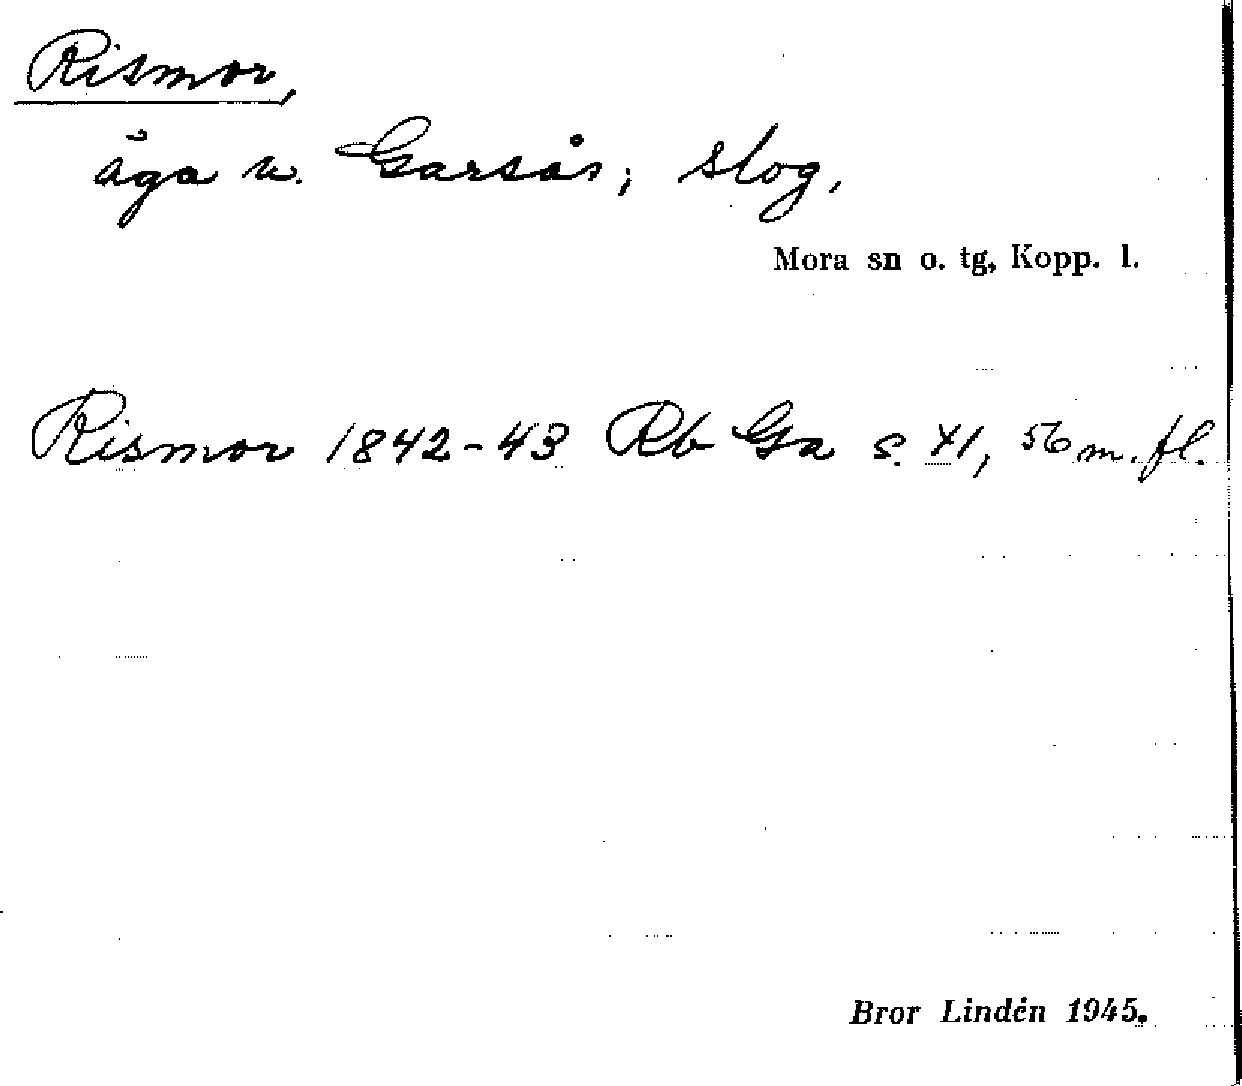 Rismor,
äga u. Garsås; slog.
Mora sn o. tg, Kopp. l.
Rismor 1842-43 Rb Ga s. 41, 56 m. fl.
Bror Lindén 1945.